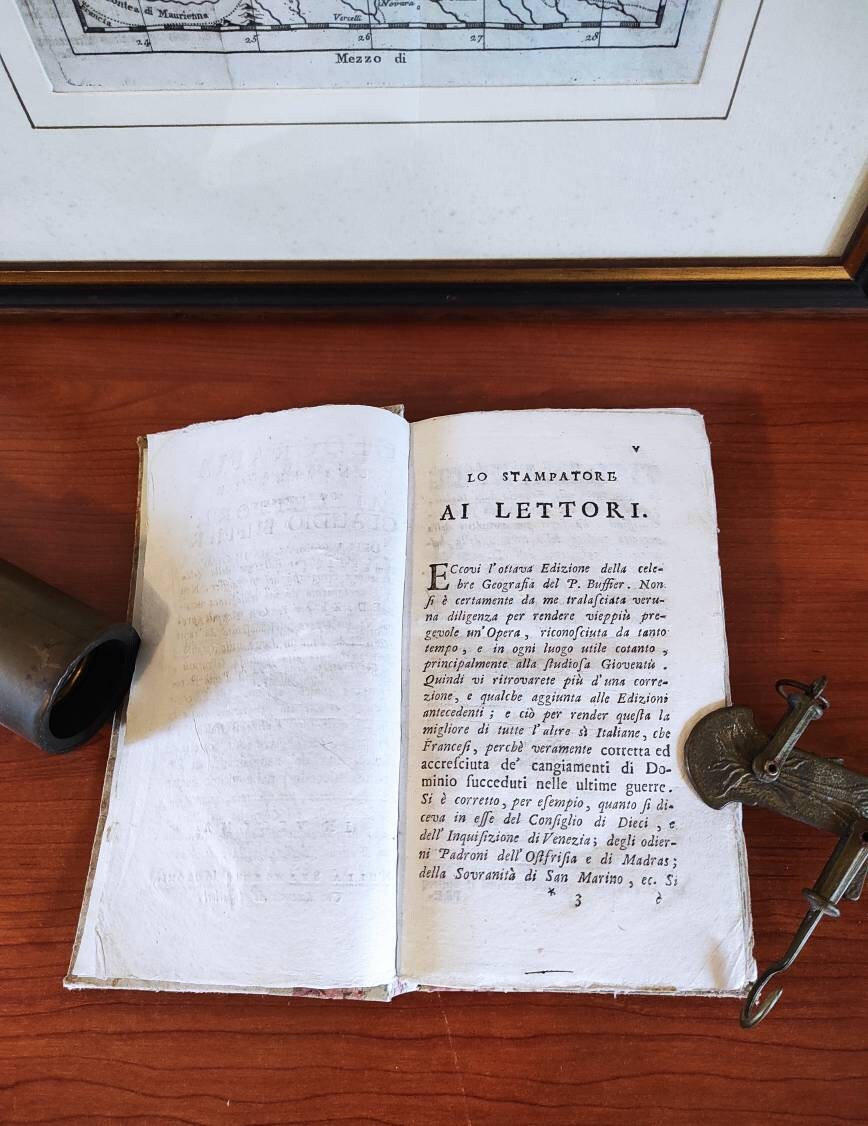 Contea di Maurienna
Francia
Vercelli
Novara
24 25 26 27 28
Mezzo di
v
LO STAMPATORE
AI LETTORI.
ECcovi l'ottava Edizione della cele-
bre Geografia del P. Buffier. Non
ſi è certamente da me tralaſciata veru-
na diligenza per rendere vieppiù pre-
gevole un'Opera, riconoſciuta da tanto
tempo, e in ogni luogo utile cotanto,
principalmente alla ſtudioſa Gioventù.
Quindi vi ritrovarete più d'una corre-
zione, e qualche aggiunta alle Edizioni
antecedenti; e ciò per render queſta la
migliore di tutte l'altre sì Italiane, che
Franceſi, perchè veramente corretta ed
accreſciuta de' cangiamenti di Do-
minio ſucceduti nelle ultime guerre.
Si è corretto, per eſempio, quanto ſi di-
ceva in eſſe del Conſiglio di Dieci, e
dell'Inquiſizione di Venezia; degli odier-
ni Padroni dell'Oſtfriſia e di Madras;
della Sovranità di San Marino, ec. Si
* 3 è